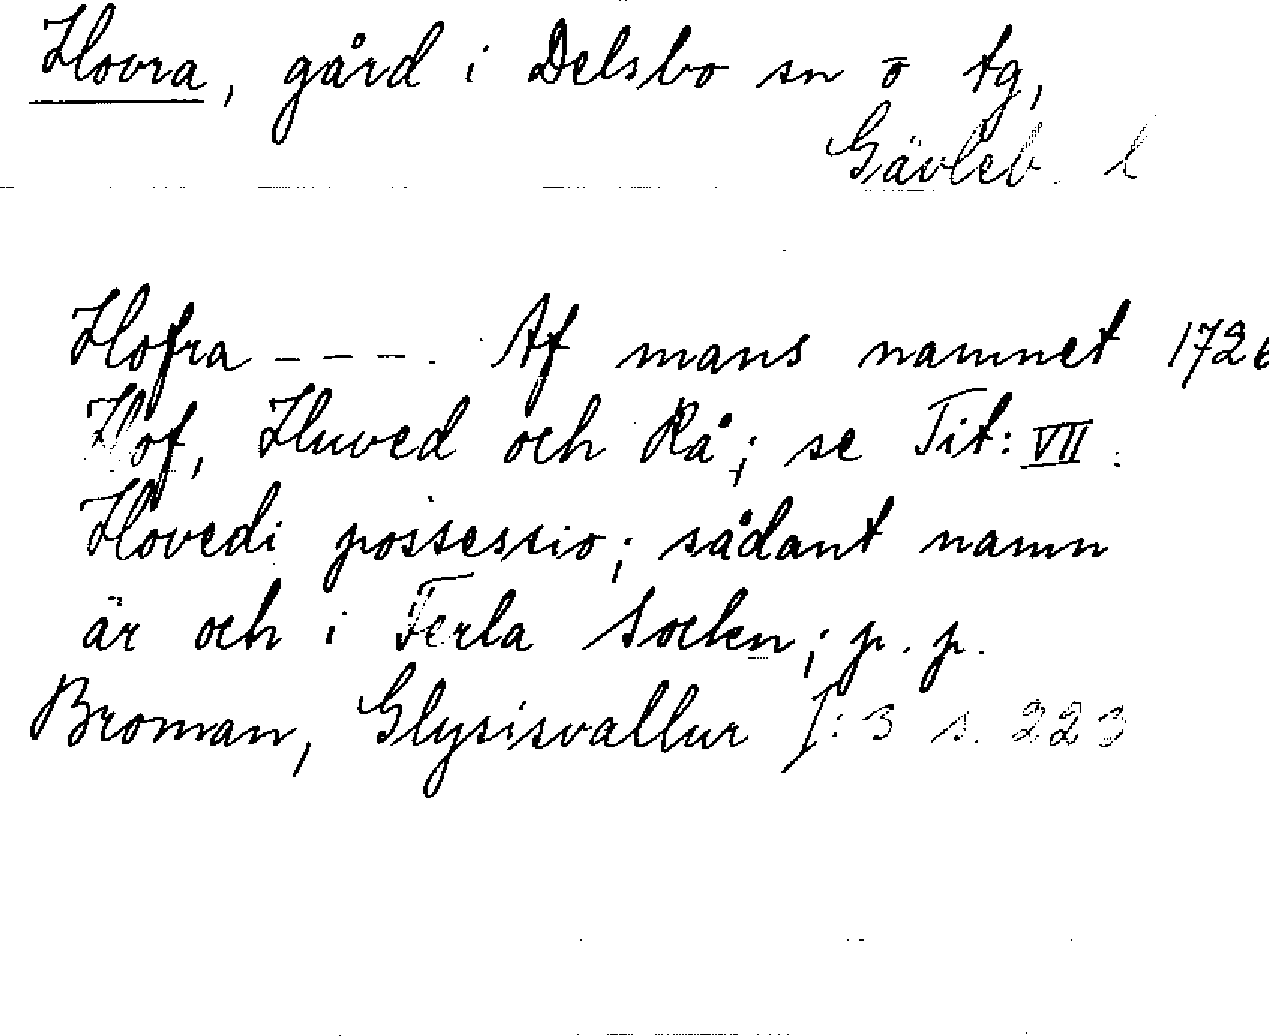 Hovra, gård i Delsbo sn o tg,
Gävleb. l
Hofra - - - -. Af mans namnet 1726
Hof, Huved och Rå; se Tit: VII.
Hovedi possessio; sådant namn
är och i Ferla Socken; p. p.
Broman, Glysisvallur I: 3 s. 223